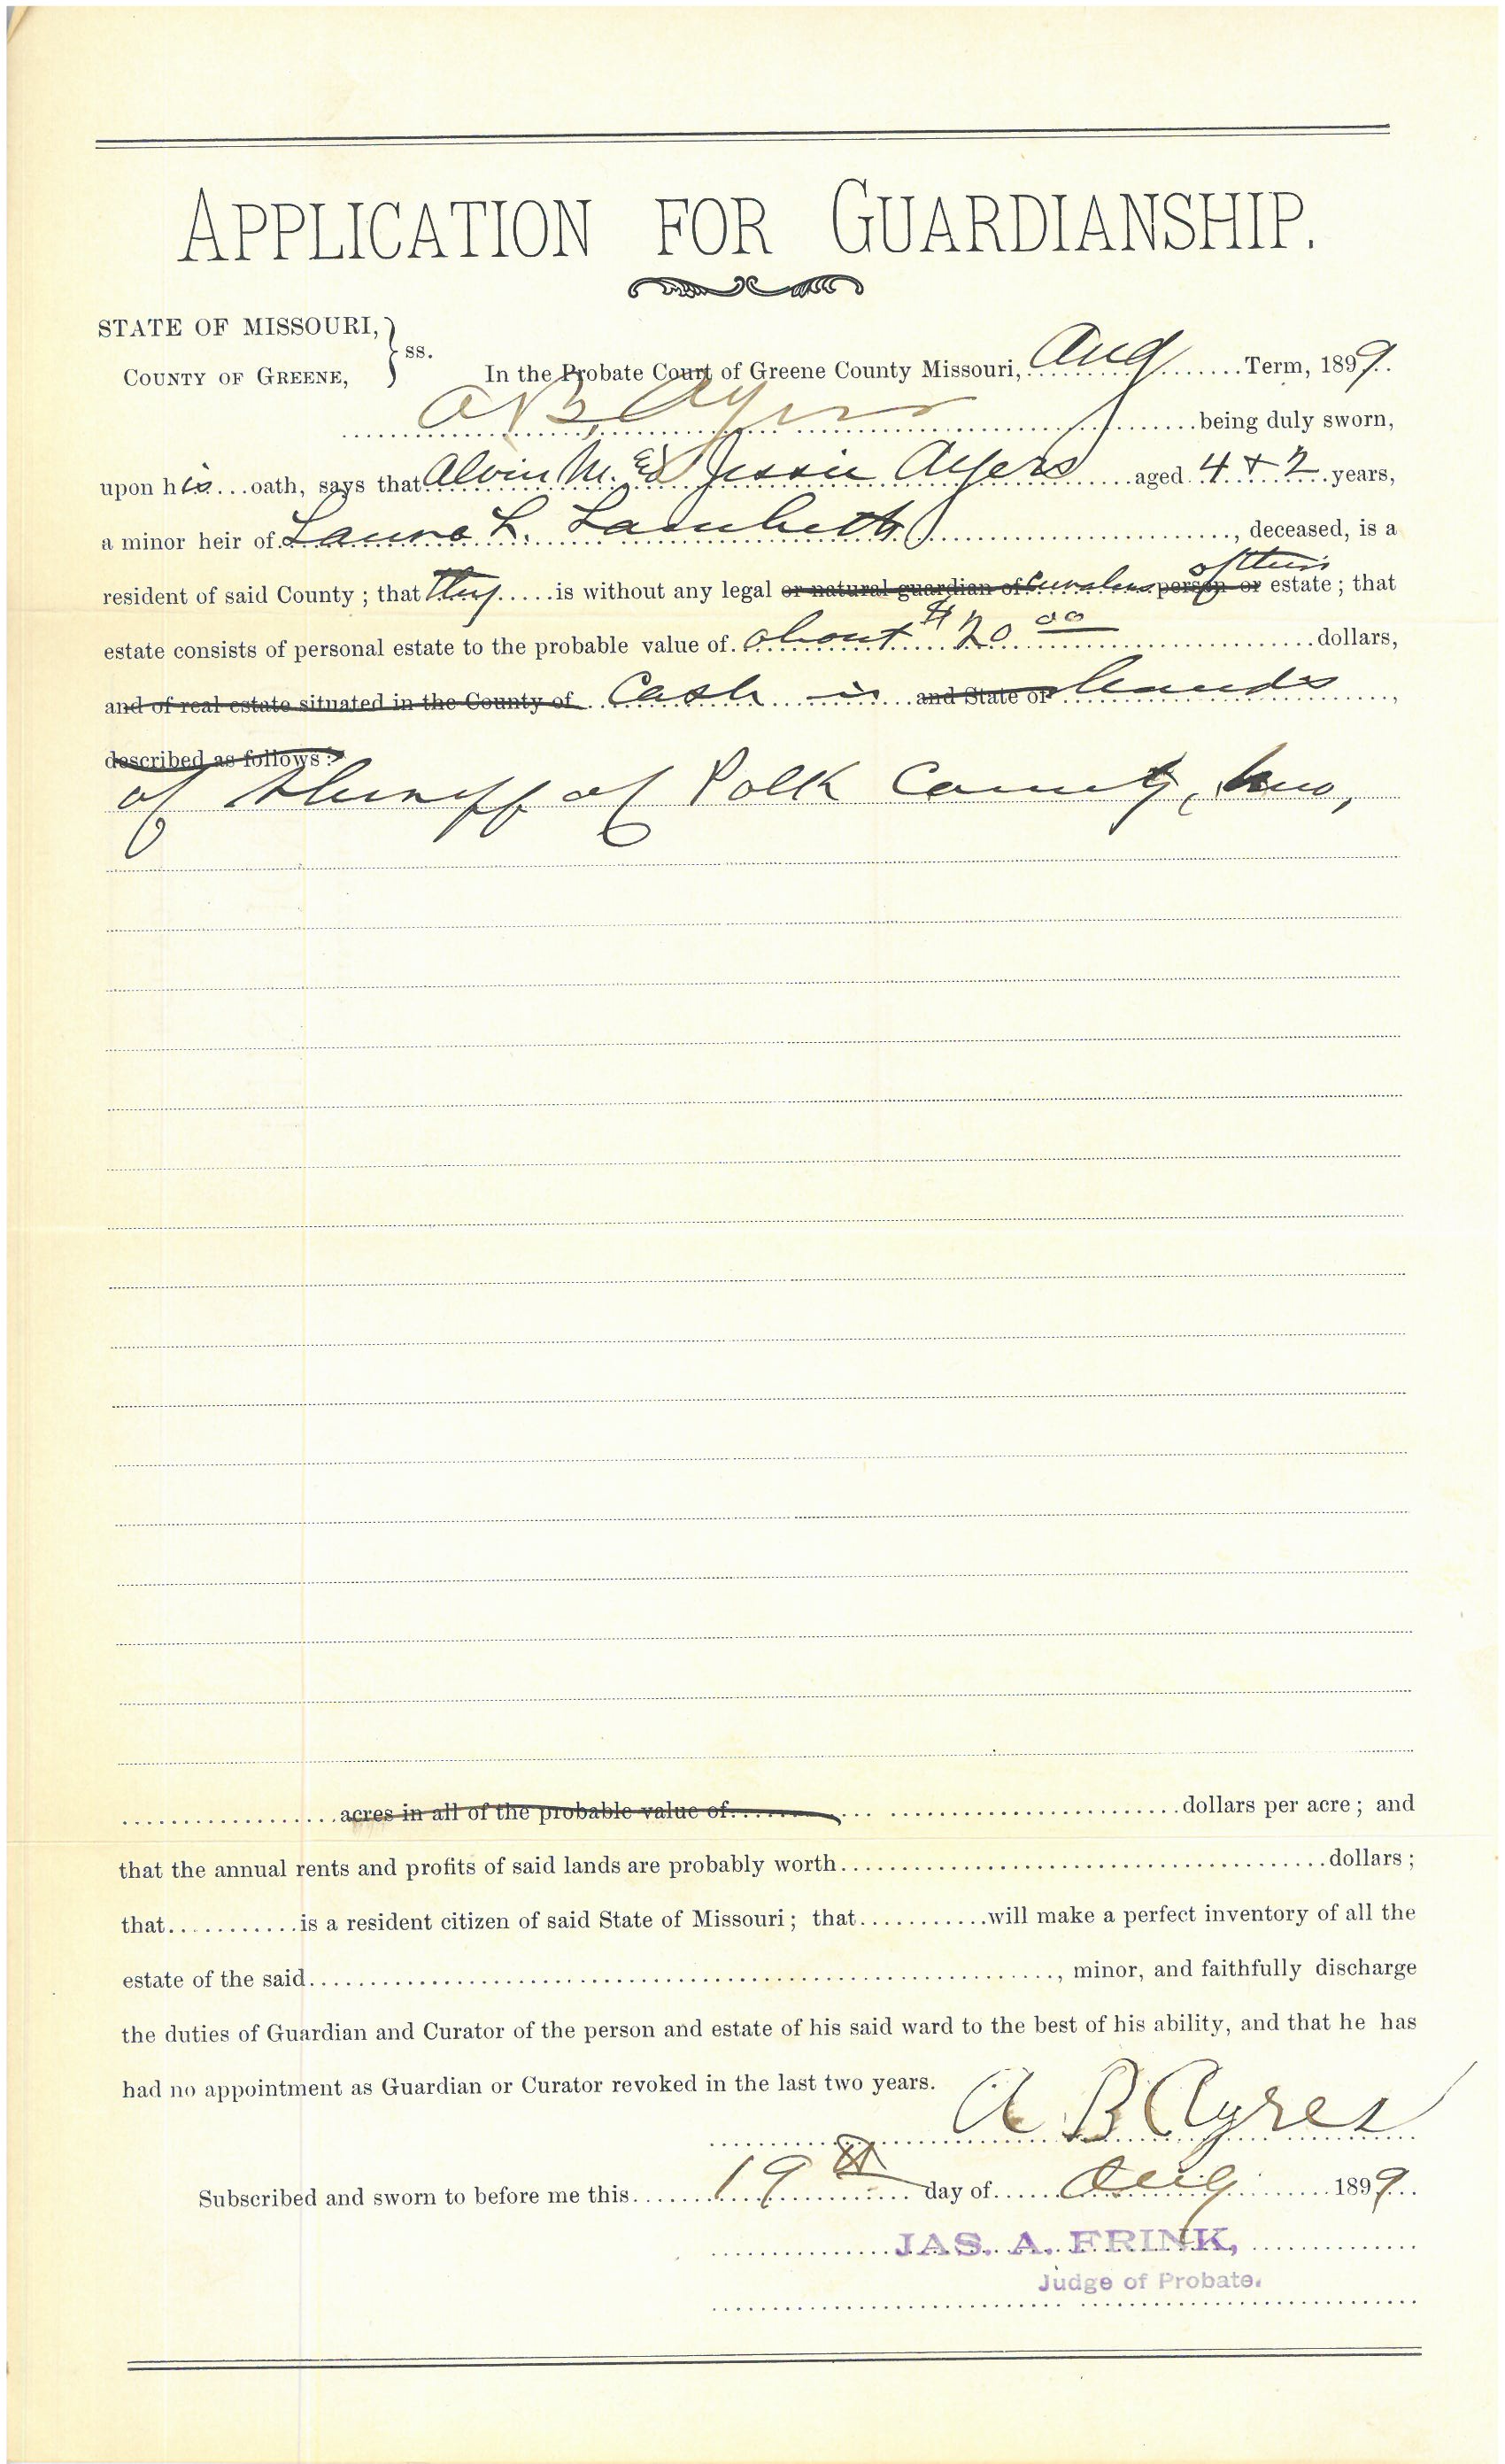 APPLICATION FOR GUARDIANSHIP.
STATE OF MISSOURI,
COUNTY OF GREENE, } ss.
In the Probate Court of Greene County Missouri, Aug Term, 1899.
A B Ayres being duly sworn,
upon his oath, says that Alvin M. & Jessie Ayers aged 4 & 2 years,
a minor heir of Laura L. Lambeth, deceased, is a
of their
resident of said County ; that they is without any legal or natural guardian of curator person or estate ; that
estate consists of personal estate to the probable value of about $20 00 dollars,
and of real estate situated in the County of Cash in and State of hands,
described as follows :
of Sheriff of Polk County, Mo,
acres in all of the probable value of dollars per acre ; and
that the annual rents and profits of said lands are probably worth dollars ;
that is a resident citizen of said State of Missouri ; that will make a perfect inventory of all the
estate of the said , minor, and faithfully discharge
the duties of Guardian and Curator of the person and estate of his said ward to the best of his ability, and that he has
had no appointment as Guardian or Curator revoked in the last two years.
A B Ayres
Subscribed and sworn to before me this 19th day of Aug 1899.
JAS. A. FRINK,
Judge of Probate.